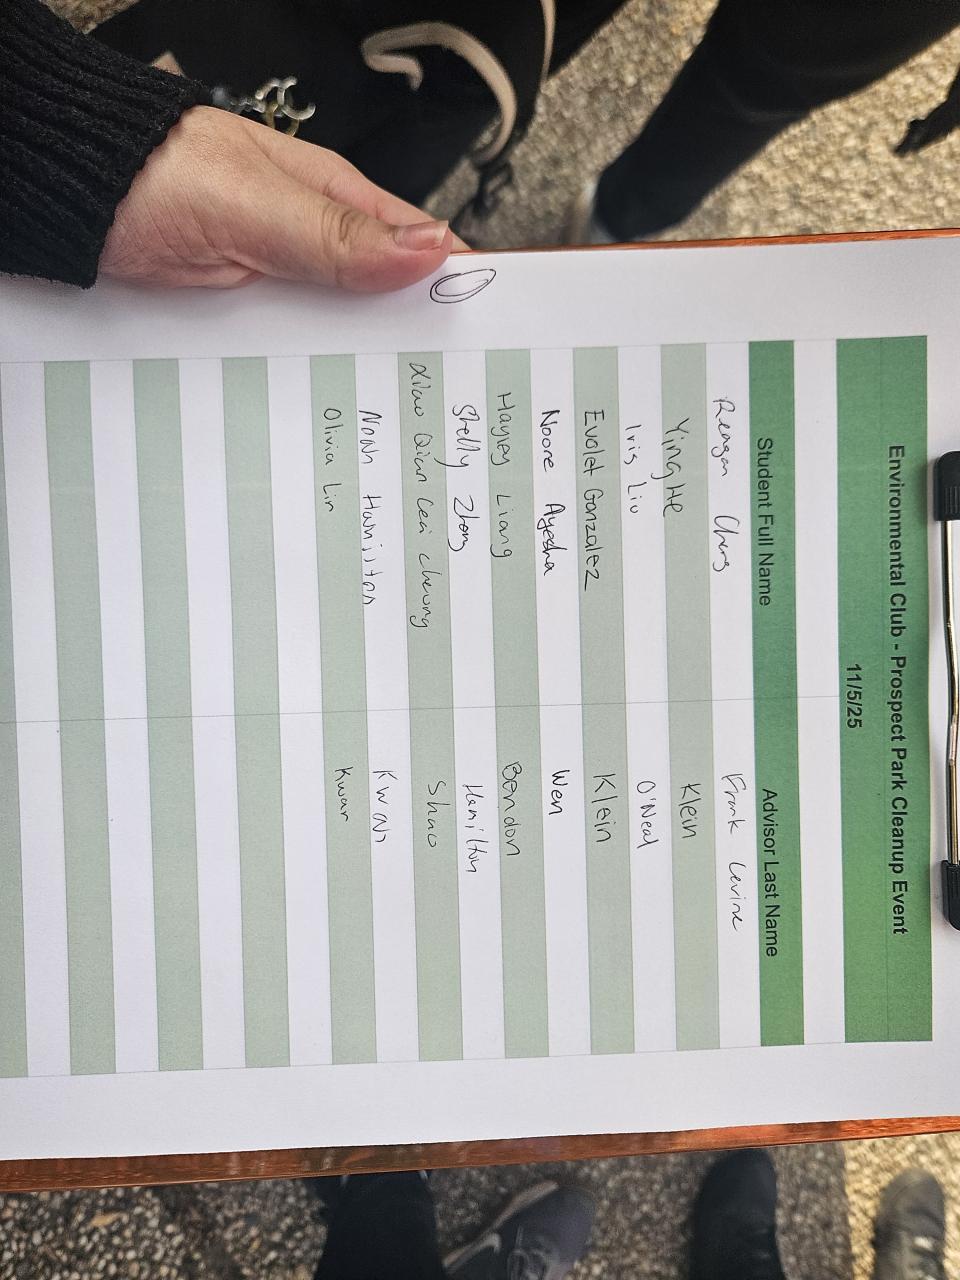 Environmental Club - Prospect Park Cleanup Event
11/5/25
Student Full Name Advisor Last Name
Reagan Frank Levine
Ying He Klein
Iris Liu O'Neal
Evolet Gonzalez Klein
Noore Ayesha Wen
Hayley Liang Bendon
Shelly Zhong Hamilton
Xiao Qian Ceci Cheung Shao
Noah Hamilton Kwan
Olivia Lin Kwan